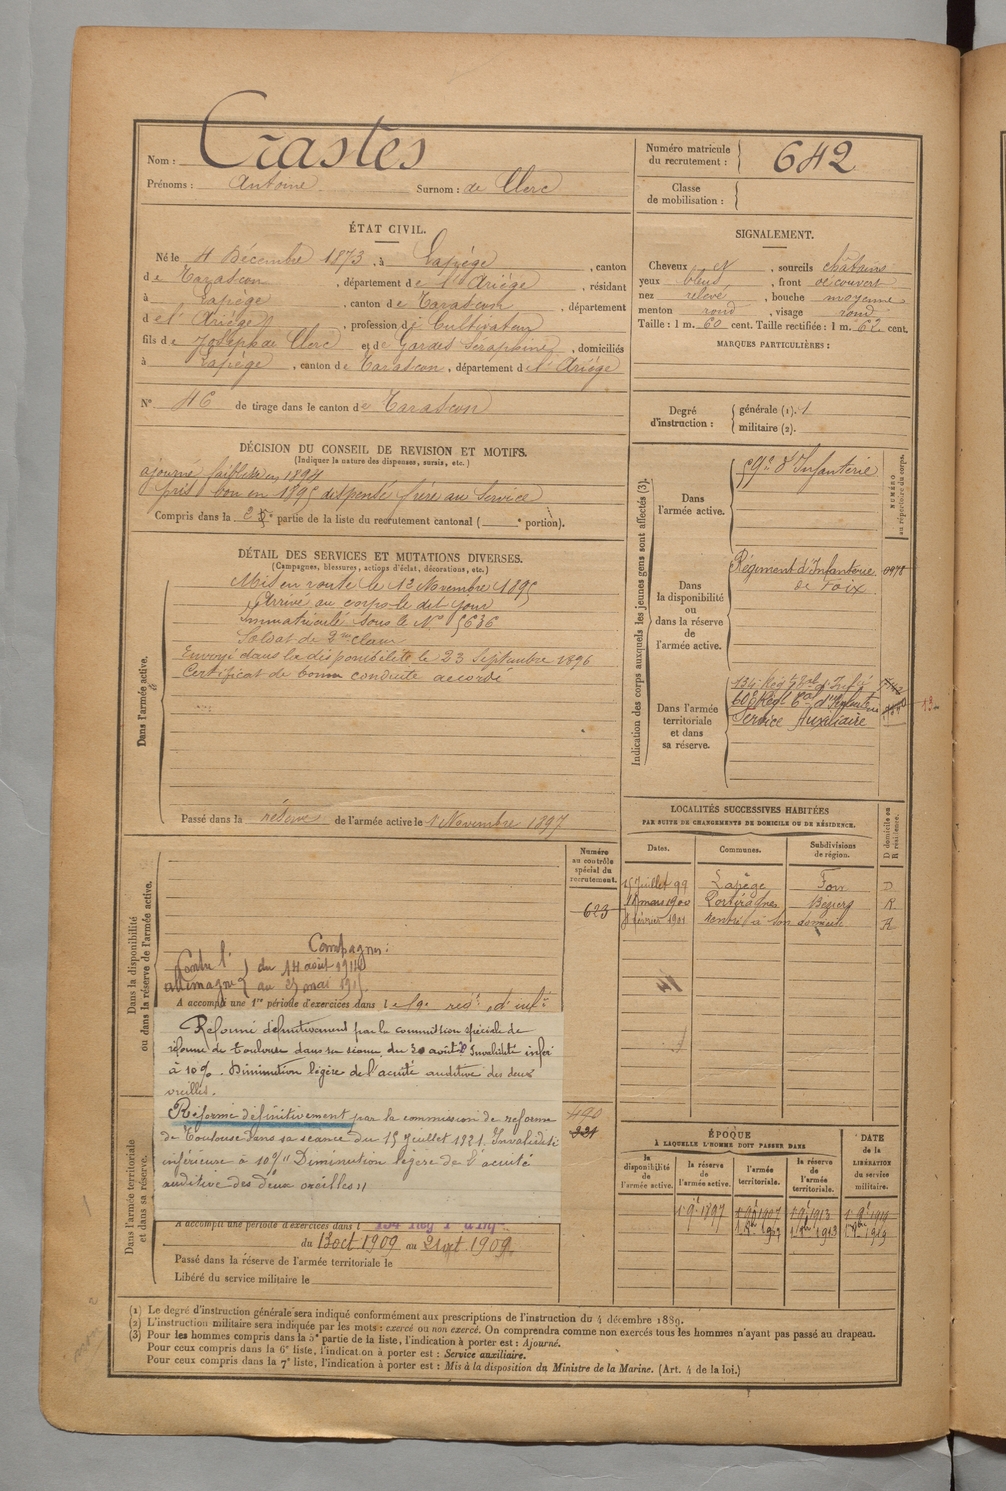 Nom : Crastes
Prénoms : Antoine Surnom : de Clerc
Numéro matricule du recrutement : 642
Classe de mobilisation :
ÉTAT CIVIL.
Né le 4 Décembre 1873, à Lapège, canton
de Tarascon, département de l'Ariège, résidant
à Lapège, canton de Tarascon, département
de l'Ariège, profession de Cultivateur
fils de Joseph de Clerc et de Gardes Séraphine, domiciliés
à Lapège, canton de Tarascon, département de l'Ariège
N° 46 de tirage dans le canton de Tarascon
SIGNALEMENT.
Cheveux N, sourcils châtains
yeux bleus, front découvert
nez relevé, bouche moyenne
menton rond, visage rond
Taille : 1 m. 60 cent. Taille rectifiée : 1 m. 62 cent.
MARQUES PARTICULIÈRES :
Degré d'instruction : générale (1). 1
militaire (2).
DÉCISION DU CONSEIL DE REVISION ET MOTIFS.
(Indiquer la nature des dispenses, sursis, etc.)
ajourné faiblesse en 1894
pris bon en 1895 dispensé frère au Service
Compris dans la 2e partie de la liste du recrutement cantonal ( e portion).
DÉTAIL DES SERVICES ET MUTATIONS DIVERSES.
(Campagnes, blessures, actions d'éclat, décorations, etc.)
Dans l'armée active.
Mis en route le 12 Novembre 1895
Arrivé au corps le dit jour
Immatriculé sous le N° 5636
Soldat de 2me classe
Envoyé dans la disponibilité le 23 Septembre 1896
Certificat de bonne conduite accordé
Passé dans la réserve de l'armée active le 1 Novembre 1897
Indication des corps auxquels les jeunes gens sont affectés (3).
NUMÉRO au répertoire du corps.
Dans l'armée active.
59e d'Infanterie
Dans la disponibilité ou dans la réserve de l'armée active.
Régiment d'Infanterie 0978
de Foix
Dans l'armée territoriale et dans sa réserve.
134e Régt Tal d'Infie
Service Auxiliaire
LOCALITÉS SUCCESSIVES HABITÉES
PAR SUITE DE CHANGEMENTS DE DOMICILE OU DE RÉSIDENCE.
Dates. Communes. Subdivisions de région. D domicile ou R résidence.
15 Juillet 99 Lapège Foix D
18 mars 1900 Portiragnes Béziers R
8 février 1901 rentré à son domicile R
Dans la disponibilité ou dans la réserve de l'armée active.
Numéro au contrôle spécial du recrutement.
623
Campagnes :
Contre l' du 14 août 1914
allemagne au 27 mai 1915
A accompli une 1re période d'exercices dans le 59e régt d'infie
Réformé définitivement par la commission spéciale de
réforme de Toulouse dans sa séance du 30 août Invalidité infér
à 10 %. Diminution légère de l'acuité auditive des deux
oreilles.
Réformé définitivement par la commission de réforme
de Toulouse dans sa séance du 15 Juillet 1921. Invalidité
inférieure à 10% "Diminution légère de l'acuité
auditive des deux oreilles"
Dans l'armée territoriale et dans sa réserve.
490
221
A accompli une période d'exercices dans l 134 Reg T d'Inf
du 13 oct 1909 au 21 oct 1909.
Passé dans la réserve de l'armée territoriale le
Libéré du service militaire le
ÉPOQUE
À LAQUELLE L'HOMME DOIT PASSER DANS
la disponibilité de l'armée active. la réserve de l'armée active. l'armée territoriale. la réserve de l'armée territoriale. DATE de la LIBÉRATION du service militaire.
1 9bre 1897 1 9bre 1907 1 9bre 1913 1 9bre 1919
(1) Le degré d'instruction générale sera indiqué conformément aux prescriptions de l'instruction du 4 décembre 1889.
(2) L'instruction militaire sera indiquée par les mots : exercé ou non exercé. On comprendra comme non exercés tous les hommes n'ayant pas passé au drapeau.
(3) Pour les hommes compris dans la 5e partie de la liste, l'indication à porter est : Ajourné.
Pour ceux compris dans la 6e liste, l'indication à porter est : Service auxiliaire.
Pour ceux compris dans la 7e liste, l'indication à porter est : Mis à la disposition du Ministre de la Marine. (Art. 4 de la loi.)